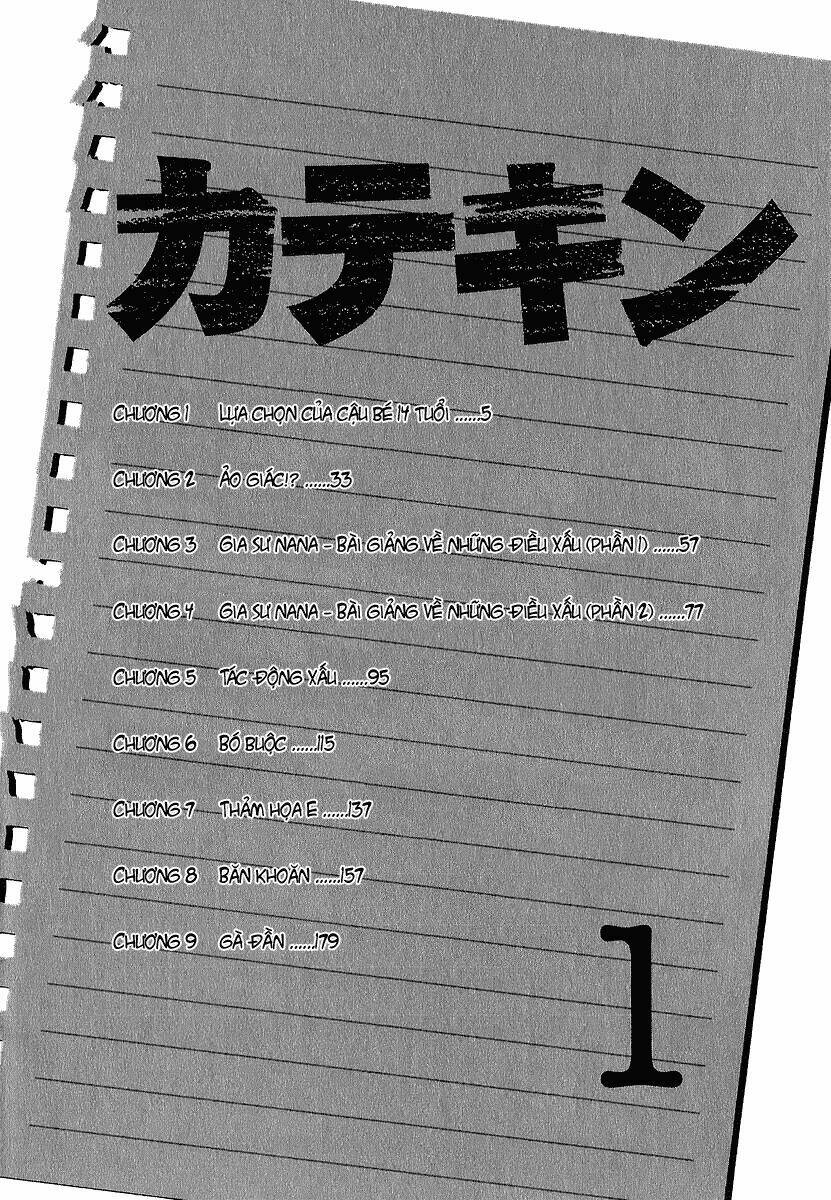 カテキン
CHƯƠNG 1 LỰA CHỌN CỦA CẬU BÉ 14 TUỔI ......5
CHƯƠNG 2 ẢO GIÁC!? ......33
CHƯƠNG 3 GIA SƯ NANA - BÀI GIẢNG VỀ NHỮNG ĐIỀU XẤU (PHẦN 1) ......57
CHƯƠNG 4 GIA SƯ NANA - BÀI GIẢNG VỀ NHỮNG ĐIỀU XẤU (PHẦN 2) ......77
CHƯƠNG 5 TÁC ĐỘNG XẤU ......95
CHƯƠNG 6 BÓ BUỘC ......115
CHƯƠNG 7 THẢM HỌA E ......137
CHƯƠNG 8 BĂN KHOĂN ......157
CHƯƠNG 9 GÀ ĐẦN ......179
1